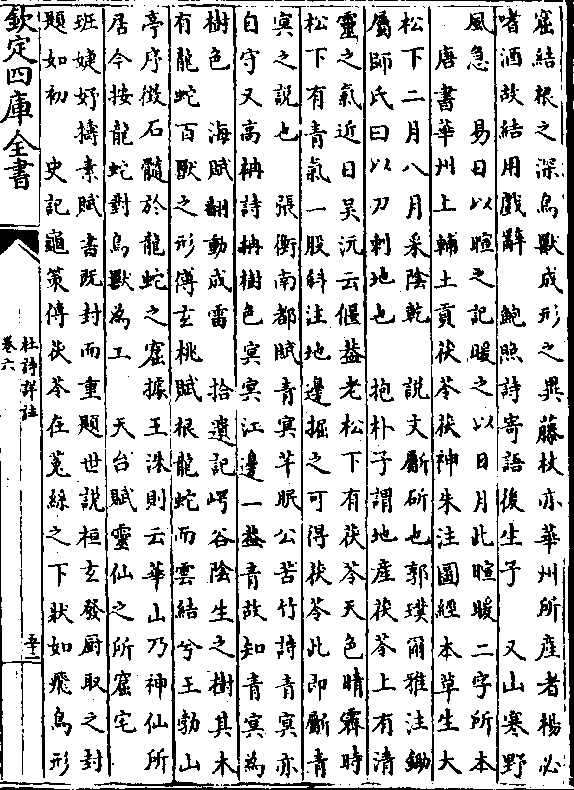 窟結根之深鳥獸成形之異藤杖亦華州所産者楊必
嗜酒故結用戲辭　鮑照詩寄語後生子　又山寒野
風急　易日以暄之記暖之以日月此暄暖二字所本
唐書華州上輔土貢茯苓茯神朱注圖經本草生大
松下二月八月采陰乾　説文斸斫也郭璞爾雅注鋤
屬師氏曰以刀刺地也　抱朴子謂地產茯苓上有清
靈之氣近日吴沅云偃蓋老松下有茯苓天色晴霽時
松下有青氣一股斜注地邊掘之可得茯苓此即斸青
冥之説也　張衡南都賦青冥芊眠公苦竹詩青冥亦
自守又高柟詩柟樹色冥冥江邊一蓋青故知青冥為
樹色　海賦翻動成雷　拾遺記崿谷陰生之樹其木
有龍蛇百獸之形傅玄桃賦根龍蛇而雲結兮王勃山
亭序徴石髓於龍蛇之窟據王洙則云華山乃神仙所
居今按龍蛇對鳥獸為工　天台賦靈仙之所窟宅
班婕妤擣素賦書既封而重題世説桓玄發厨取之封
題如初　史記龜策傳茯苓在莵絲之下狀如飛鳥形
欽定四庫全書
杜詩詳註
卷六